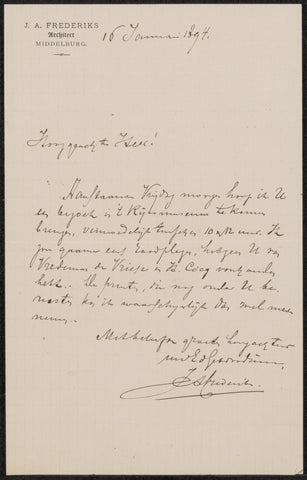 J. A. FREDERIKS
Architect
MIDDELBURG.
16 Januari 1894.
Hooggeachte Heer!
Aanstaanden Vrijdag morgen hoop ik U
een bezoek in 't Rijksmuseum te komen
brengen, vermoedelijk tusschen 10 en 12 uur. Ik
zou gaarne eens hetgeen U van
Vredeman de Vriese en H. Cocq onder
hebt. De prents, die nog onder U be-
rusten kan ik waarschijnlijk dan wel mede
nemen.
Met beleefde groeten hoogachtend
uw Ed
J A Frederiks